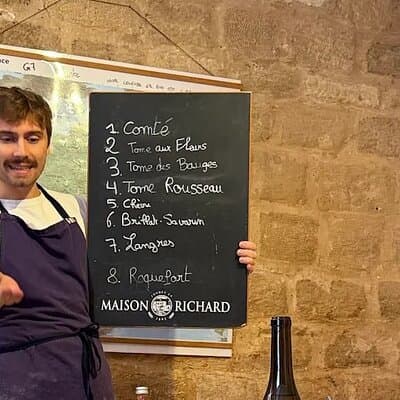 1. Comté
2 Tome aux Fleurs
3. Tome des Bauges
4. Tome Rousseau
5. Chèvre
6. Brillat-Savarin
7. Langres
8. Roquefort
MAISON RICHARD